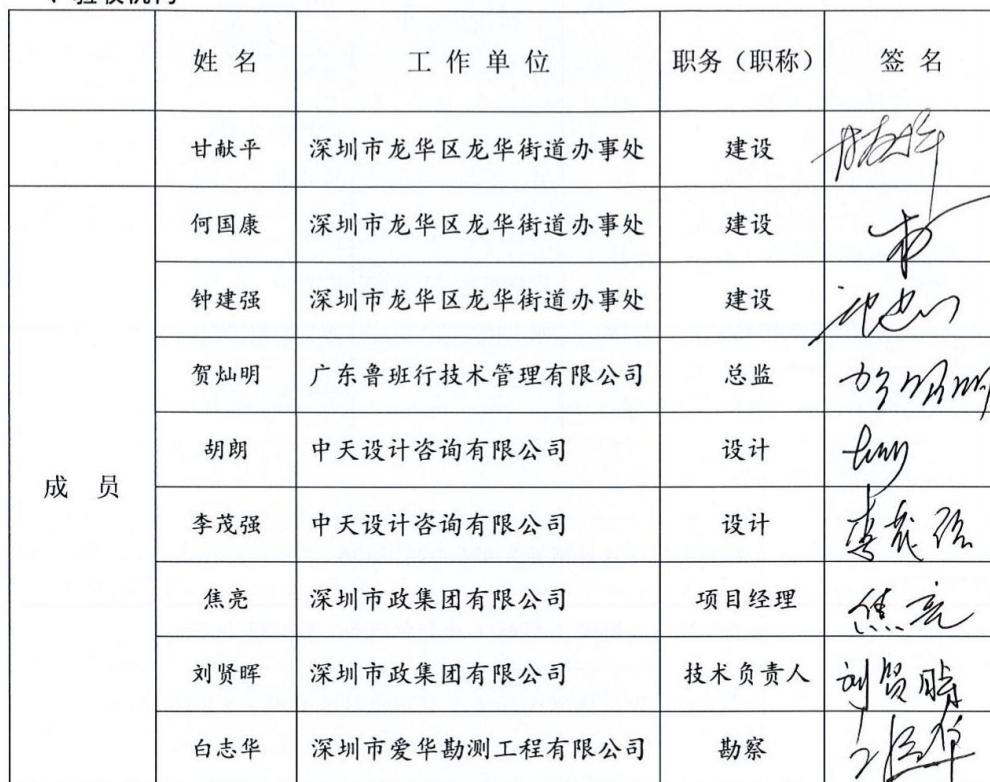 验收机构
姓 名 工 作 单 位 职务（职称） 签 名
甘献平 深圳市龙华区龙华街道办事处 建设
何国康 深圳市龙华区龙华街道办事处 建设
钟建强 深圳市龙华区龙华街道办事处 建设
贺灿明 广东鲁班行技术管理有限公司 总监
胡朗 中天设计咨询有限公司 设计
成 员 李茂强 中天设计咨询有限公司 设计 李茂强
焦亮 深圳市政集团有限公司 项目经理 焦亮
刘贤晖 深圳市政集团有限公司 技术负责人 刘贤晖
白志华 深圳市爱华勘测工程有限公司 勘察